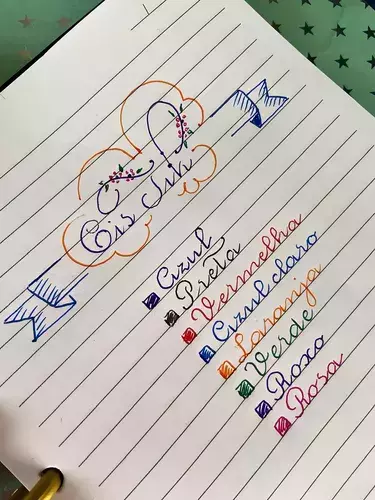 Cis Sth
Azul
Preta
Vermelha
Azul claro
Laranja
Verde
Roxo
Rosa